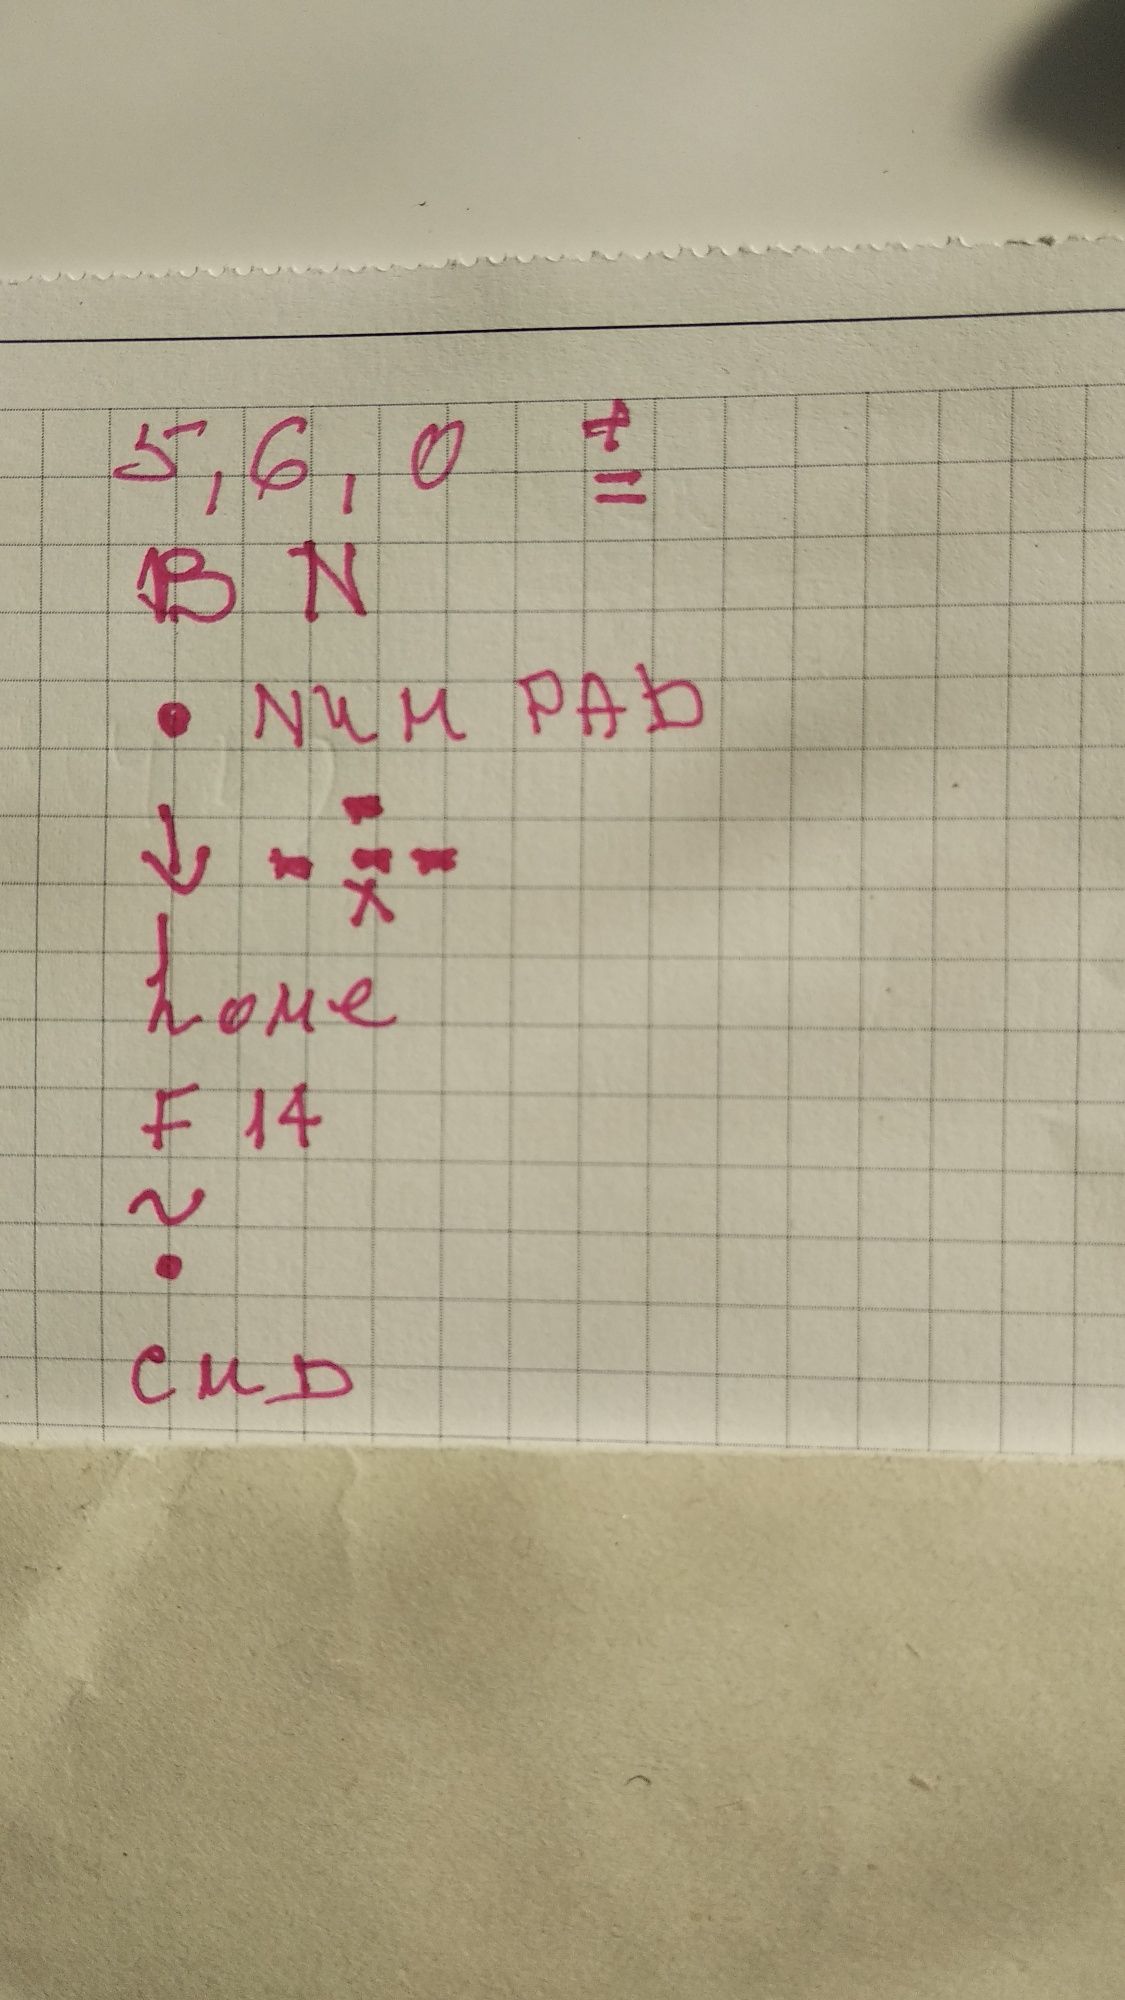 5, 6, 0 + =
B N
• NUM PAD
↓ - - - -
x
home
F 14
~
•
CMD